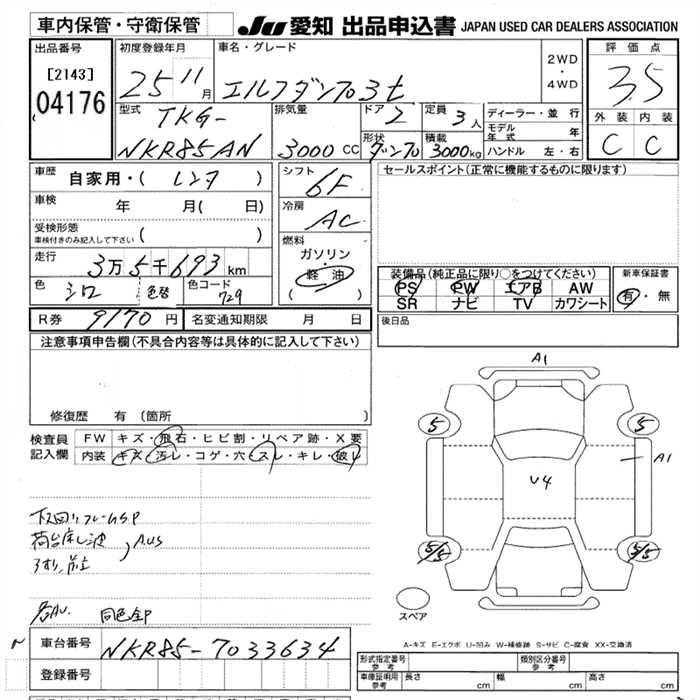 車内保管・守衛保管
JU 愛知 出品申込書 JAPAN USED CAR DEALERS ASSOCIATION
出品番号
[2143]
04176
初度登録年月
25 11月
車名・グレード
エルフダンプ3t
2WD
・
4WD
評価点
3.5
外装 内装
C C
型式
TKG-
NKR85AN
排気量
3000 CC
ドア 2
形状
ダンプ
定員 3人
積載
3000kg
ディーラー・並行
モデル年式 年
ハンドル 左・右
車歴 自家用・( レンタ )
車検 年 月( 日)
受検形態
車検付きのみ記入して下さい ( )
走行
3万5千693km
色 シロ 色替 色コード 729
シフト
6F
冷房
AC
燃料
ガソリン・
軽油
( )
セールスポイント(正常に機能するものに限ります)
装備品(純正品に限り○をつけてください)
PS PW エアB AW
SR ナビ TV カワシート
新車保証書
有・無
R券 9170円 名変通知期限 月 日
後日品
注意事項申告欄(不具合内容等は具体的に記入して下さい)
修復歴 有(箇所 )
検査員記入欄
FW キズ・飛石・ヒビ割・リペア跡・X要
内装 キズ・汚レ・コゲ・穴・スレ・キレ・破レ
A1
5 5
A1
U4
5/5 5/5
スペア
下回りフレームSP
同色全P
A-キズ E-エクボ U-凹み W-補修跡 S-サビ C-腐食 XX-交換済
車台番号 NKR85-7033634
登録番号
形式指定番号
参考
類別区分番号
参考
車庫証明用
参考
長さ cm 幅 cm 高さ cm